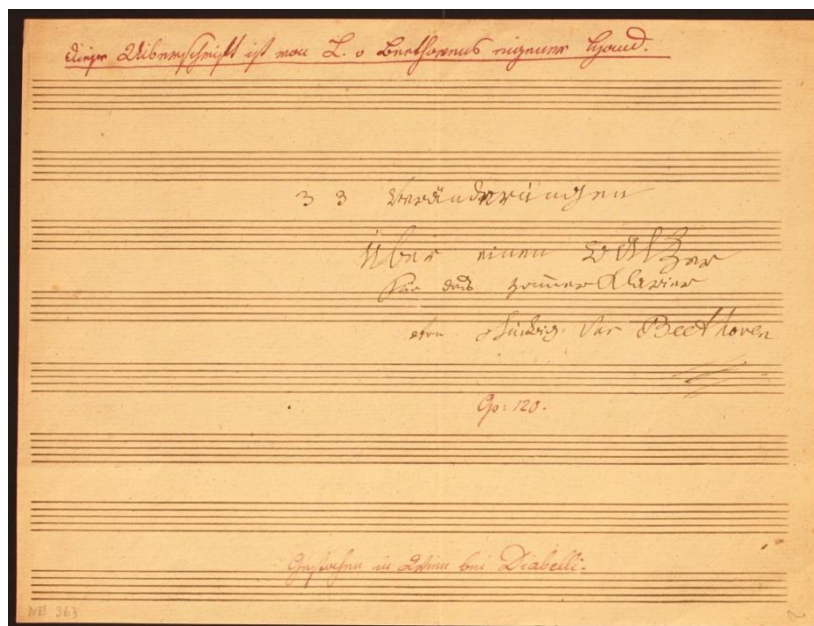 diese Uiberschrift ist von L. v Beethovens eigener Hand.
33 Veränderungen
über einen Walzer
für das Hammer Klavier
von Ludwig van Beethoven
Op: 120.
Gestochen in Wien bei Diabelli.
NE 363